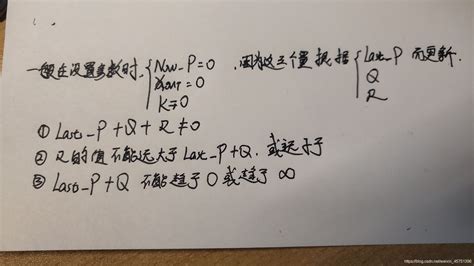 一般在设置参数时, { Now_P=0 , 因为这三个量根据 { Last_P 而更新.
out=0 Q
K=0 R
① Last_P+Q+R≠0
② R的值不能远大于Last_P+Q, 或远小于
③ Last_P+Q 不能趋于0或趋于∞
https://blog.csdn.net/weixin_45751396